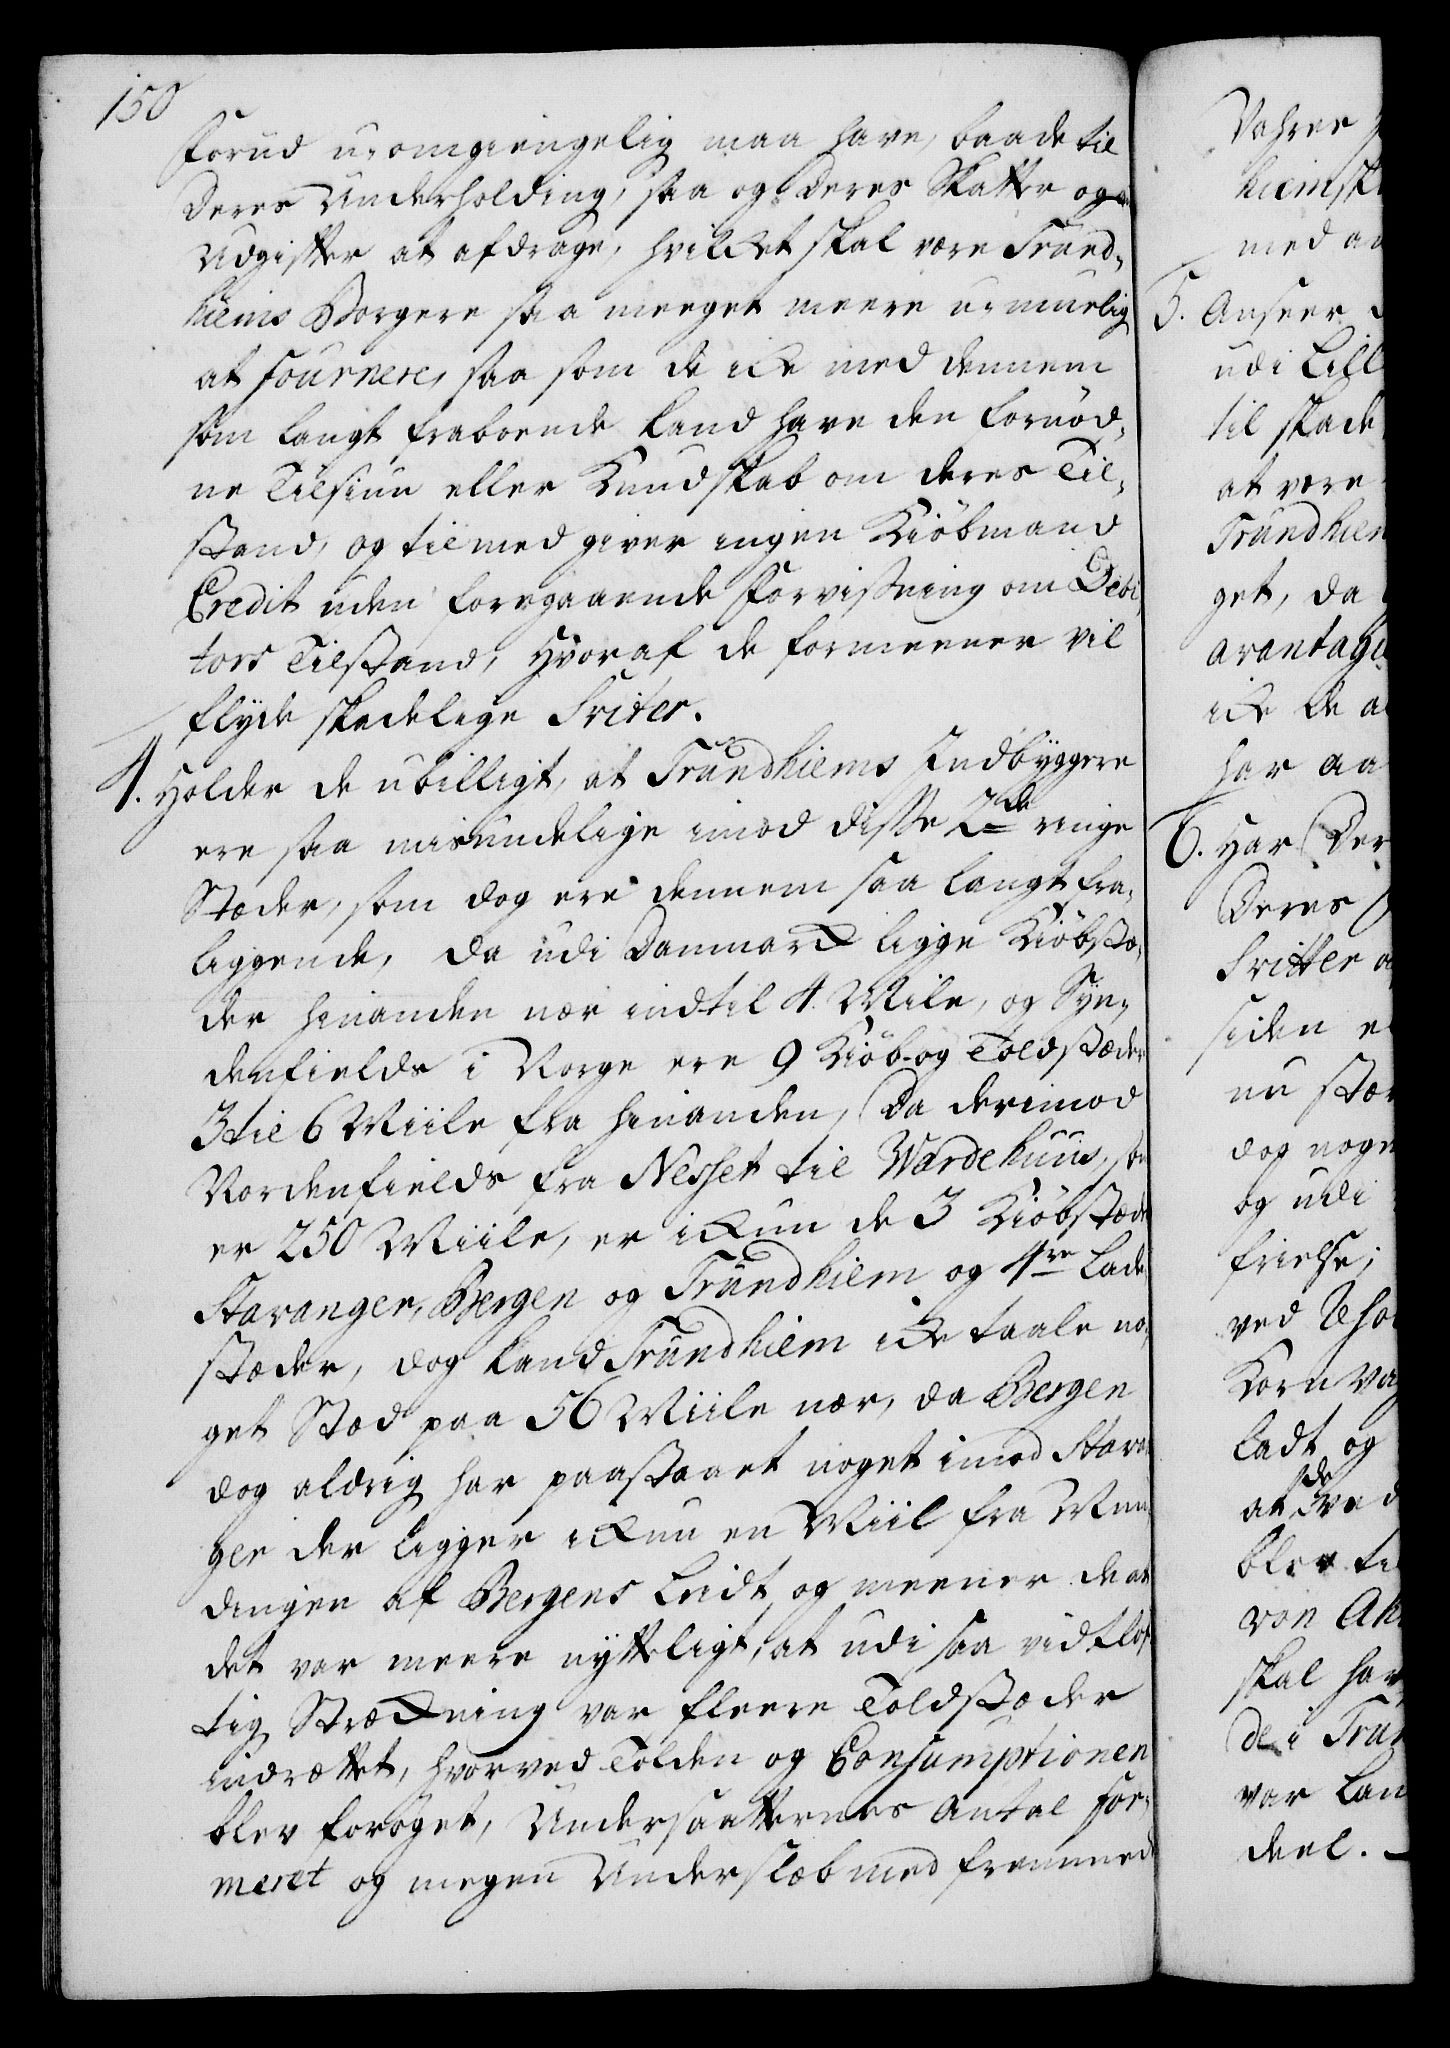 150
forud u-omgiengelig maa have, baade til
deres Underholding, saa og deres Skatter og
Udgifter at afdrage, hvilket skal være Trund-
hiems Borgere saa meeget meere u-muelig
at fournere, saa som de icke med dennem
som langt fraboende kand have den fornöd-
ne Tilsiun eller Kundskab om deres Til-
stand, og tilmed giver ingen Kiöbmand
Credit uden foregaaende Forvissning om Debi-
tors Tilstand, hvoraf de formeener vil
flyde skadelige Sviter.
4. Holder de ubilligt, at Trundhiems Indbyggere
ere saa misundelige imod disse 2de ringe
Stæder, som dog ere dennem saa langt fra-
liggende, da udi Danmarck ligge Kiöbstæ-
der hinanden nær indtil 4 Mile, og Syn-
denfields i Norge ere 9 Kiöb- og Toldstæder
3 til 6 Miile fra hinanden, Da derimod
Nordenfields fra Nesset til Wardehuus, som
er 250 Miile, er ickun de 3 Kiöbstæder
Stavanger, Bergen og Trundhiem og 4re Lade-
stæder, dog kand Trundhiem icke taale no-
get Stæd paa 56 Miile nær, da Bergen
dog aldrig har paastaaet noget imod Stavan-
ger der ligger ickun en Miil fra Mun-
dingen af Bergens Leidt, og meener de at
det var meere nytteligt, at udi saa vidtlöf-
tig Strækning var fleere Toldstæder
indrettet, hvorved Tolden og Consumptionen
blev foröget, Undersaatternes Antal for-
meret og megen Underslæb med fremmede
Vahrer
hiemsk
med an
5. Anseer
udi Lill
til skade
at være
Trundhiem
get, da
avantage
icke de a
har aa
6. Har Der
Deres
Svitter
siden e
nu stor
dog nogen
og udi
frielse;
ved
Korn Va
ladt og
at
blev til
von Ah
skal hav
de i Trun
var Lan
deel.